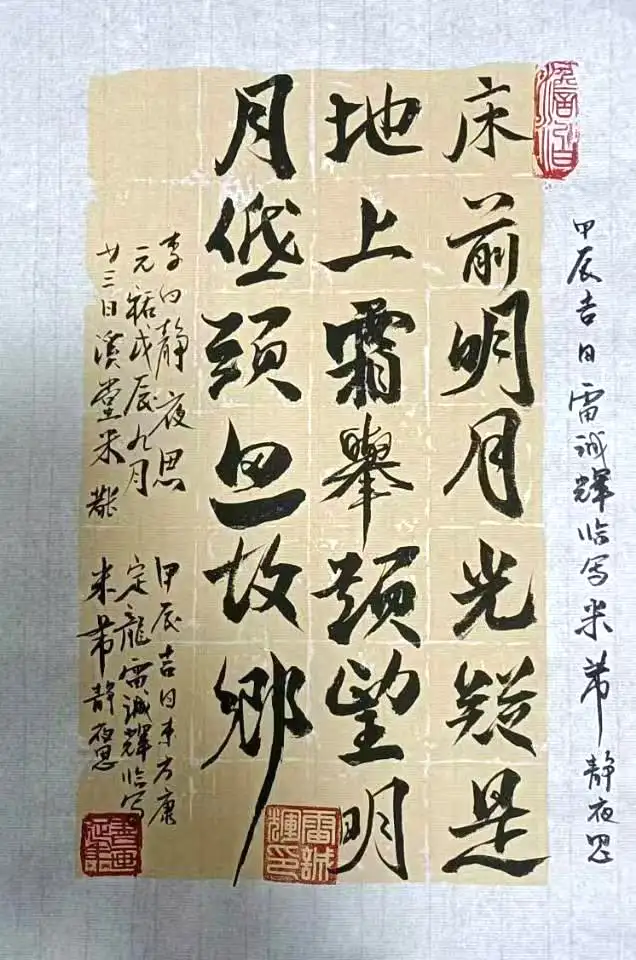 甲辰吉日雷诚輝临写米芾静夜思
床前明月光疑是
地上霜舉頭望明
月低頭思故鄉
李白靜夜思
元祐戊辰九月
廿三日溪堂米黻
甲辰吉日东方康
定龍雷诚輝临写
米芾静夜思
雷誠輝印